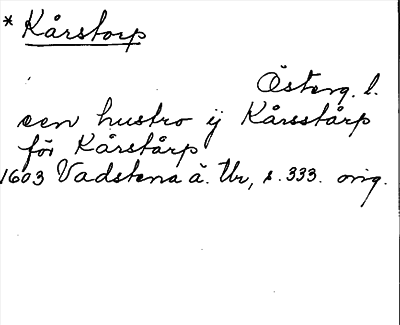 * Kårstorp
Österg. l.
een hustro ij Kårsstårp
för Kårstårp
1603 Vadstena ä. Ur, s. 333. orig.